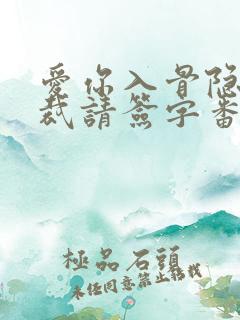 愛你入骨隐
裁請簽字番
極品石頭
未经同意禁止转载